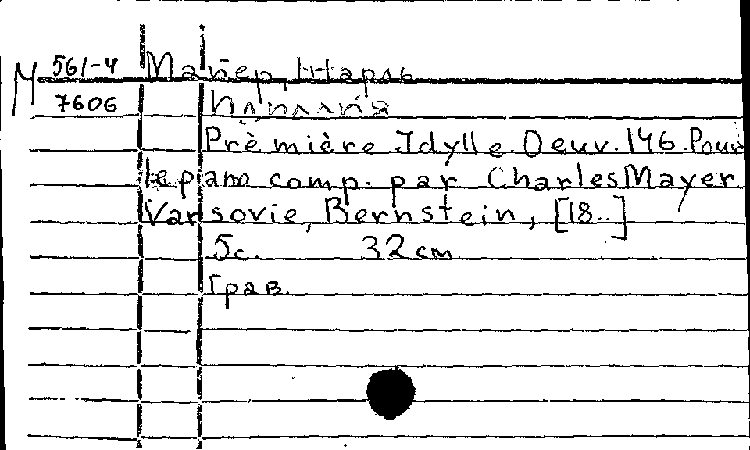 М 561-4 Майер, Шарль
7606
Première Idylle. Oeuv. 146. Pour
le piano comp. par Charles Mayer.
Varsovie, Bernstein, [18..]
5с. 32 cm
Грав.